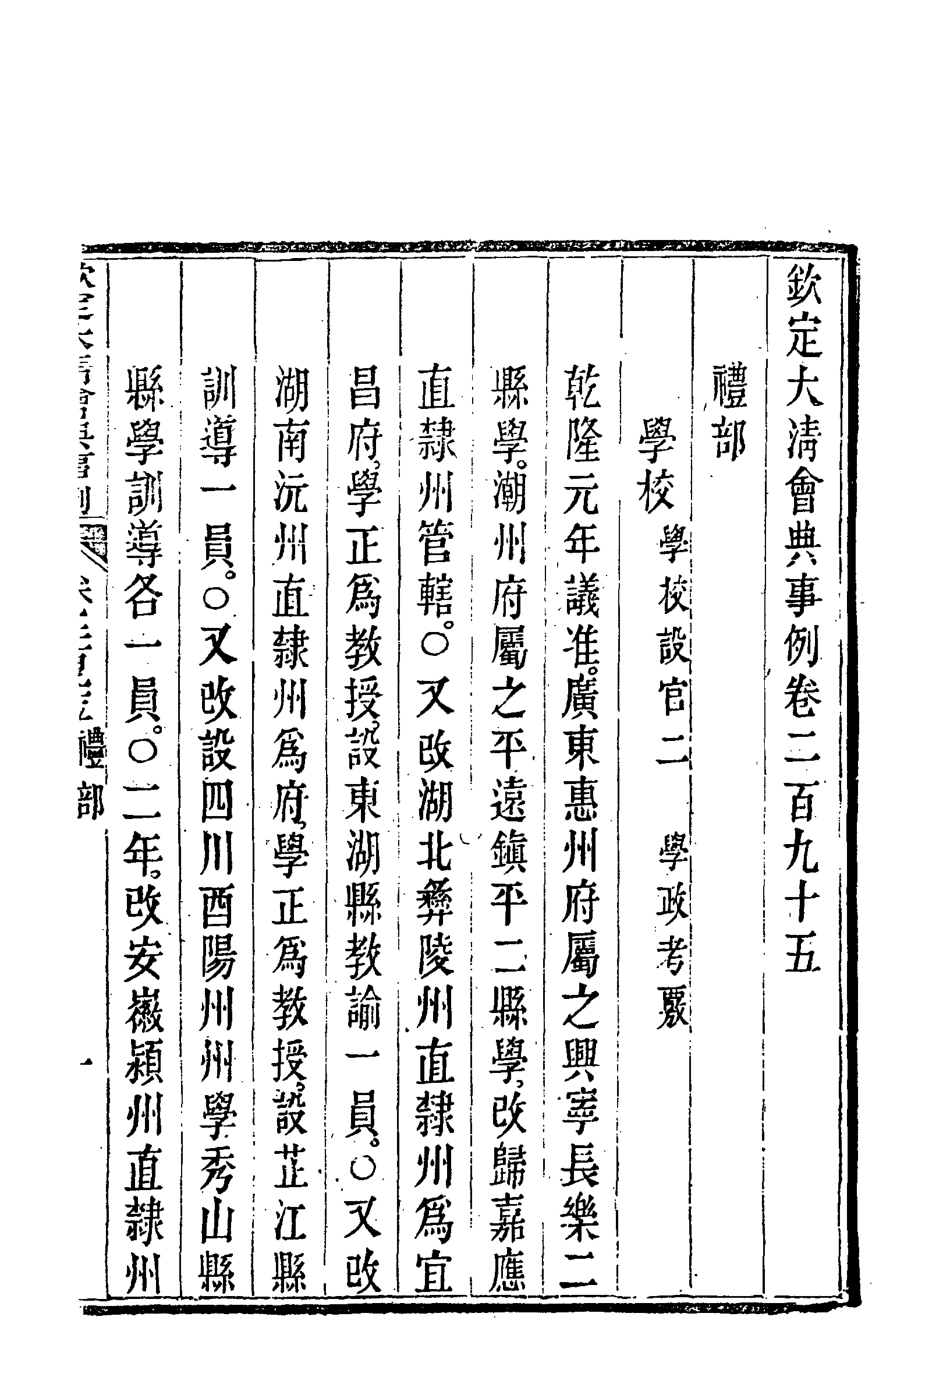 欽定大清會典事例卷二百九十五
禮部
學校 學校設官二 學政考覈
乾隆元年議准。廣東惠州府屬之興寧長樂二
縣學。潮州府屬之平遠鎮平二縣學。改歸嘉應
直隸州管轄。〇又改湖北彝陵州直隸州爲宜
昌府。學正爲教授。設東湖縣教諭一員。〇又改
湖南沅州直隸州爲府。學正爲教授。設芷江縣
訓導一員。〇又改設四川酉陽州州學秀山縣
縣學訓導各一員。〇二年。改安徽潁州直隸州
禮部
一